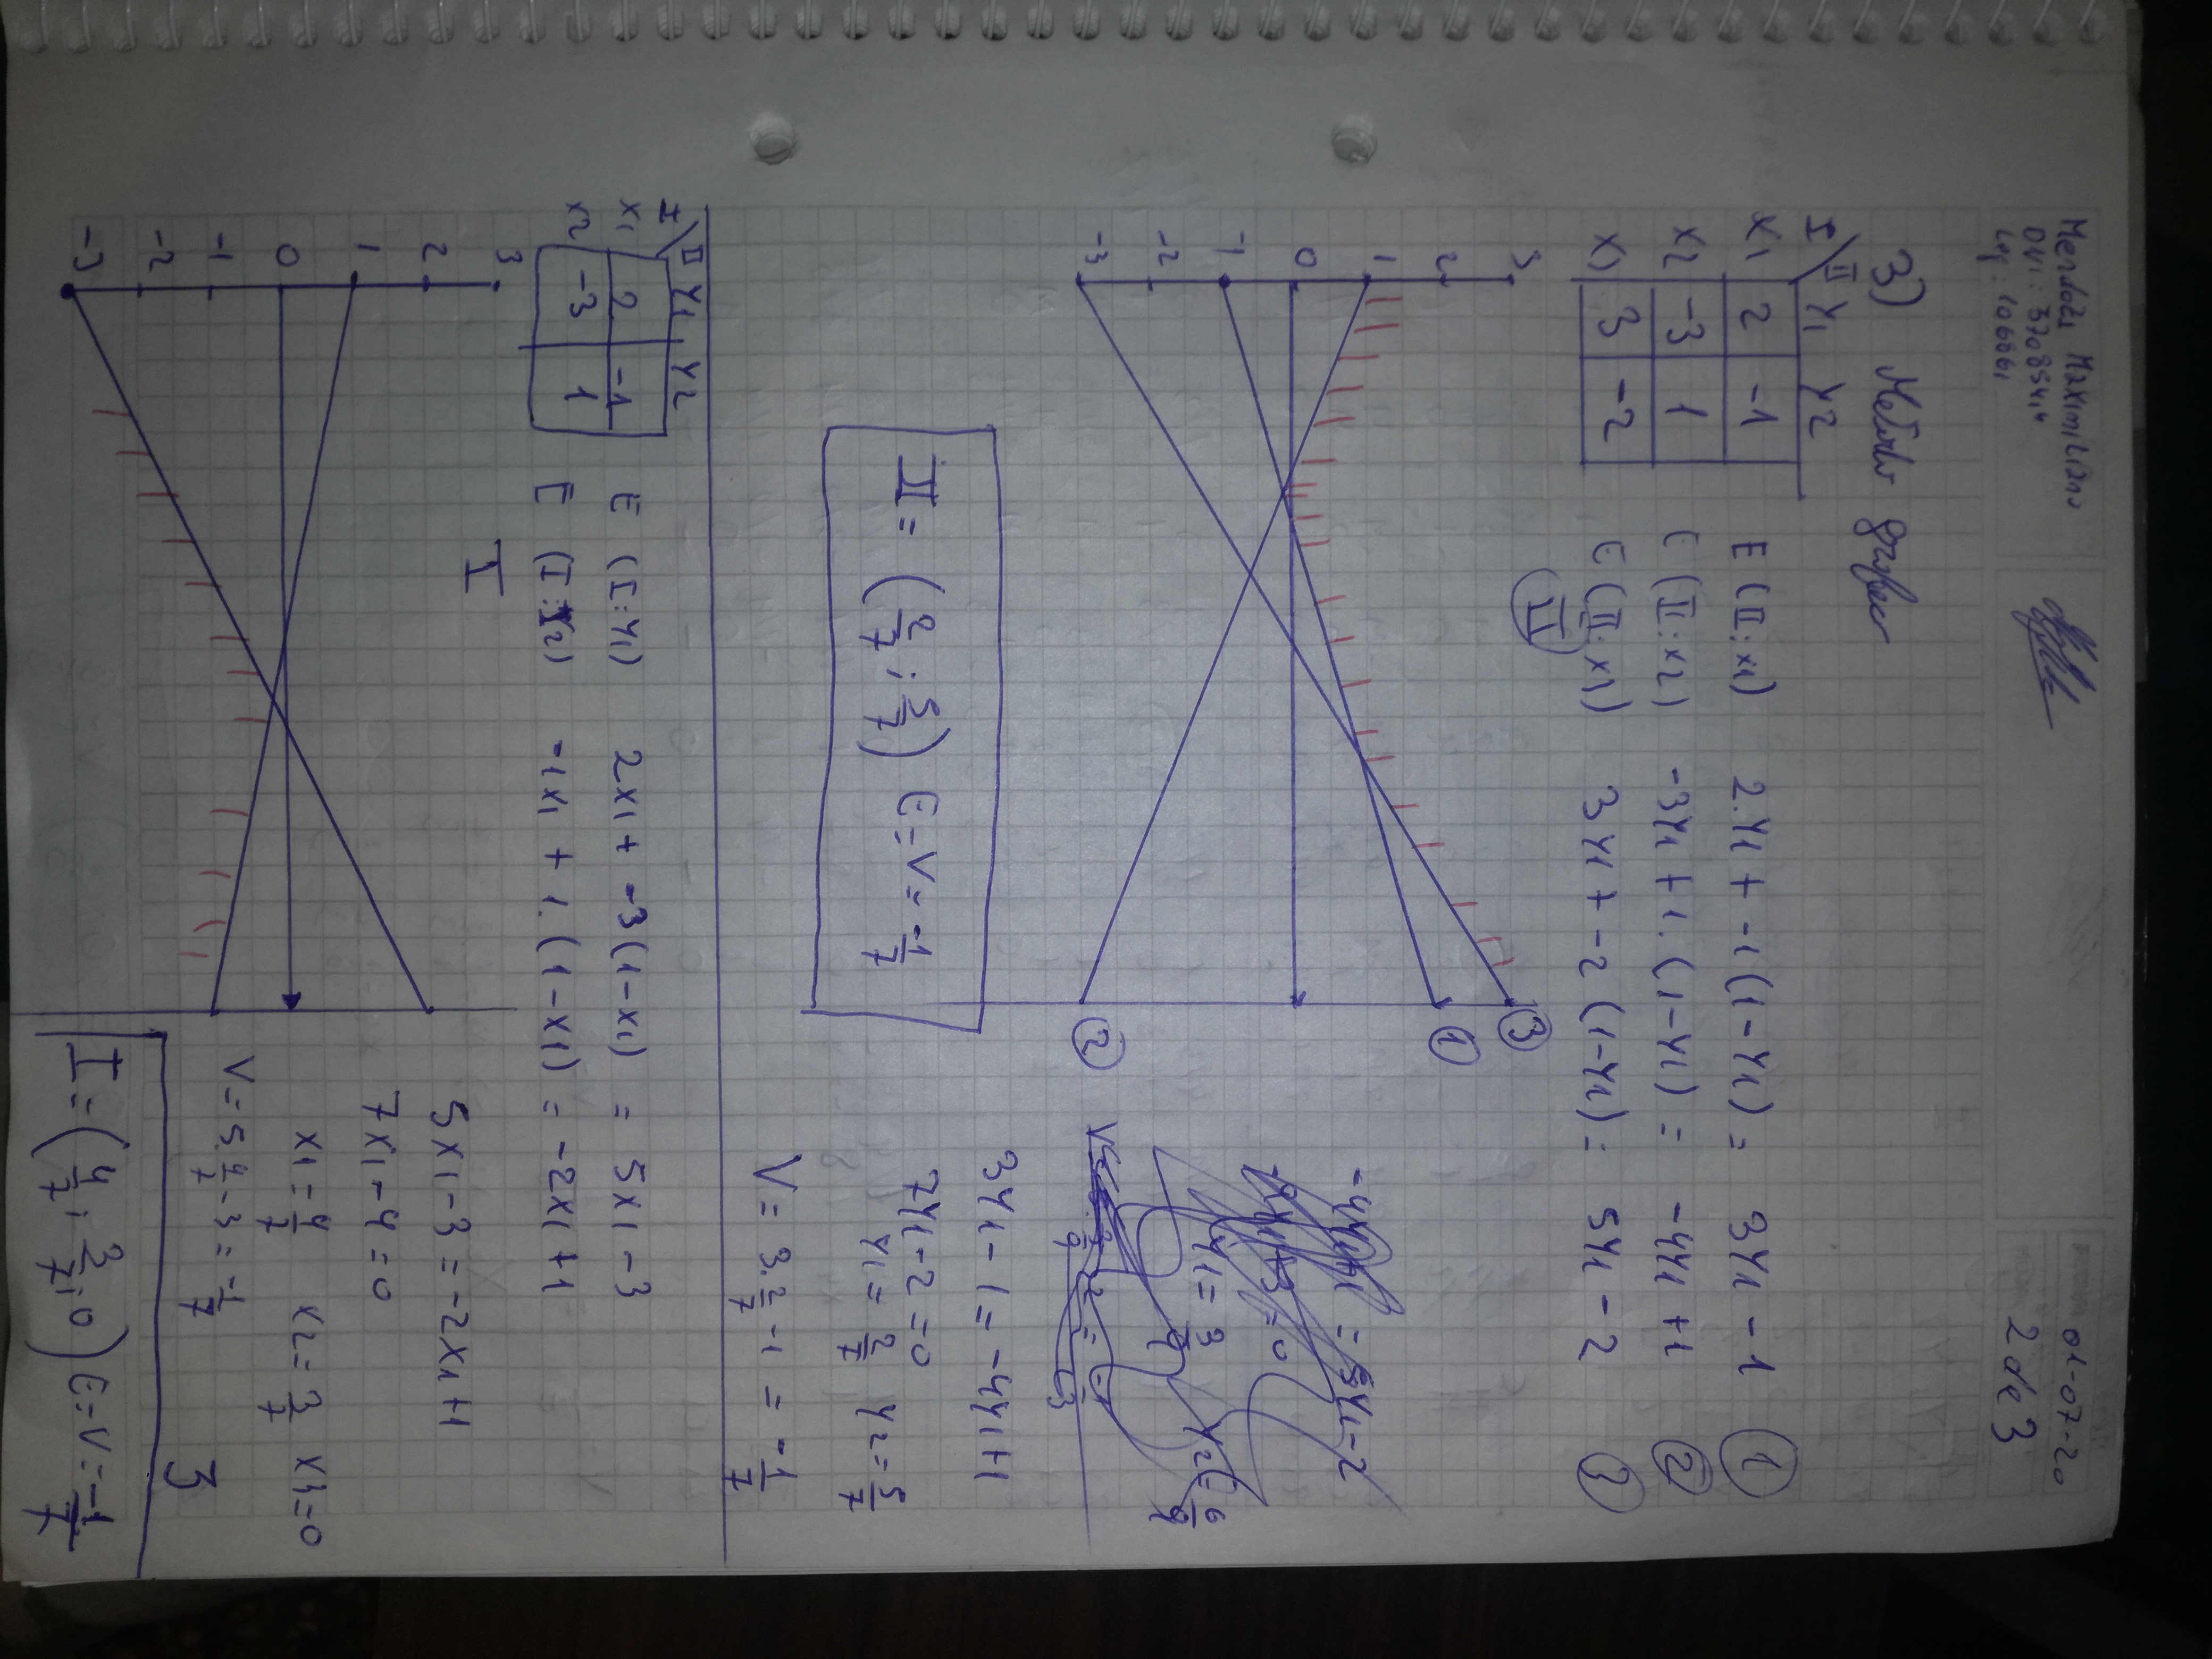 Mendoza Maximiliano
DNI: 37085414
Leg: 106861
01-07-20
2 de 3
3) Metodo grafico
I \ II Y1 Y2
X1 2 -1 E (II: x1) 2.Y1 + -1(1-Y1) = 3Y1 - 1 1
X2 -3 1 E (II: x2) -3Y1 + 1.(1-Y1) = -4Y1 + 1 2
X3 3 -2 E (II: x3) 3Y1 + -2(1-Y1) = 5Y1 - 2 3
II
3
2
1
0
-1
-2
-3
3
1
2
-4Y1+1 = 5Y1-2
-9Y1+3 = 0
Y1 = 3/9 Y2 = 6/9
3Y1 - 1 = -4Y1+1
7Y1 - 2 = 0
Y1 = 2/7 Y2 = 5/7
V = 3.2/7 - 1 = -1/7
II = (2/7 ; 5/7) E=V= -1/7
I \ II Y1 Y2
X1 2 -1 E (I:Y1) 2x1 + -3(1-x1) = 5x1 - 3
X2 -3 1 E (I:Y2) -1x1 + 1.(1-x1) = -2x1 + 1
I
3
2
1
0
-1
-2
-3
5x1 - 3 = -2x1 + 1
7x1 - 4 = 0
x1 = 4/7 x2 = 3/7 x3 = 0
V = 5.4/7 - 3 = -1/7
3
I = (4/7 ; 3/7 ; 0) E=V= -1/7